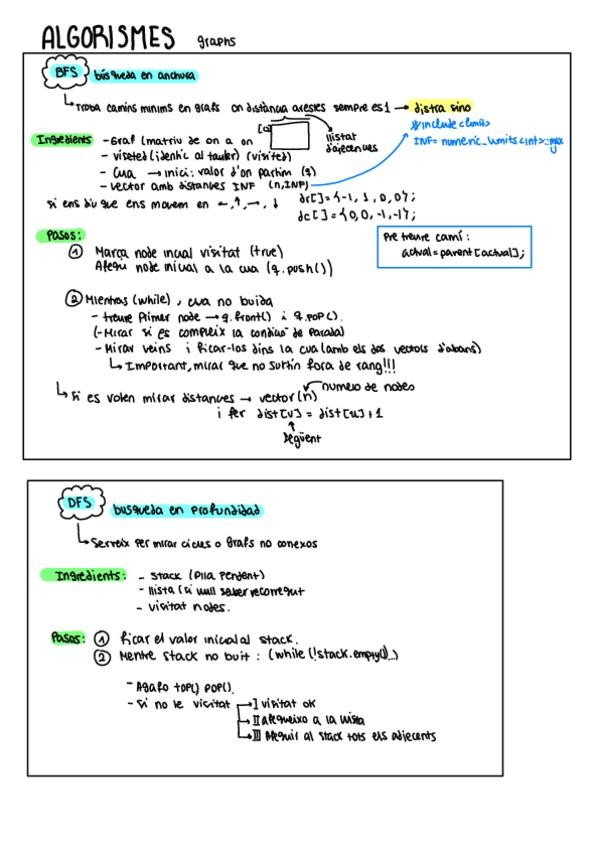 ALGORISMES graphs
BFS búsqueda en anchura
Troba camins minims en grafs on distància arestes sempre es 1 → distra sino
#include <limits>
INF= numeric_limits<int>::max
Ingredients - Graf (matriu de on a on
llistat d'adjecències
- visited (identic al tauler) (visited)
- Cua → inici: valor d'on partim (q)
- vector amb distàncies INF (n,INF)
Si ens diu que ens movem en ←,↑,→,↓
dr[]={-1, 1, 0, 0};
dc[]={0,0,-1,-1};
Pasos:
① Marca node inicial visitat (true)
Afegir node inicial a la cua (q.push())
Per treure camí:
actual=parent[actual];
② Mientras (while), cua no buida
- treure Primer node → q.front() i q.pop().
(- Mirar si es compleix la condició de parada)
- Mirar veins i ficar-los dins la cua (amb els dos vectors d'abans)
Important, mirar que no surtin fora de rang!!!
Si es volen mirar distancies → vector(n) numero de nodes
i fer dist[v] = dist[u]+1
Següent
DFS busqueda en profundidad
Serveix per mirar cicles o grafs no conexos
Ingredients: - stack (Pila Pendent)
- llista (si vull saber recorregut
- visitat nodes.
Pasos: ① ficar el valor inicial al stack.
② Mentre stack no buit : (while (!stack.empty())..)
- Agafo top() pop().
- Si no le visitat I visitat ok
II afegueixo a la llista
III Afeguir al stack tots els adjecents